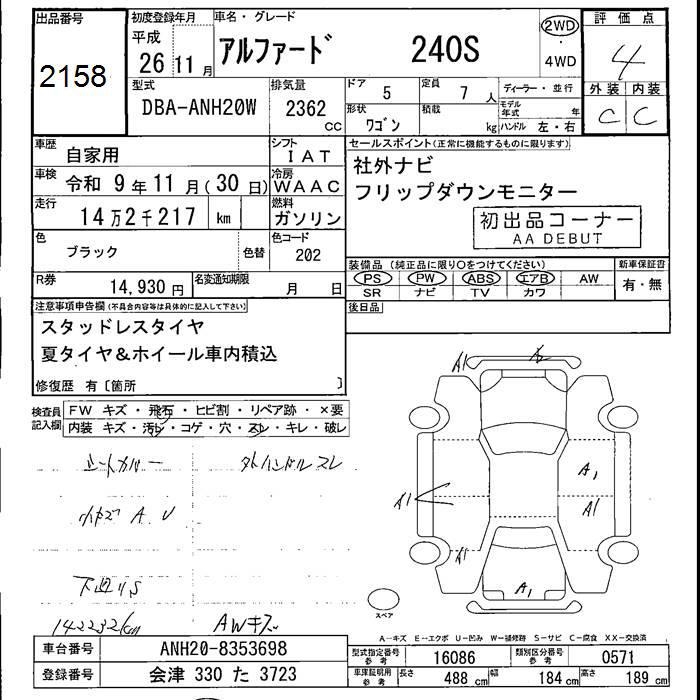 出品番号
2158
初度登録年月
平成
26 11 月
車名・グレード
アルファード 240S
2WD
・
4WD
評価点
4
外装 内装
C C
型式
DBA-ANH20W
排気量
2362
CC
ドア 5
定員 7 人
ディーラー・並行
形状
ワゴン
積載
kg
モデル年式 年
ハンドル 左・右
車歴 自家用
シフト
IAT
車検 令和 9 年 11 月(30 日)
冷房
WAAC
走行 14 万 2 千 217 km
燃料
ガソリン
色
ブラック
色替
色コード
202
R券 14,930 円
名変通知期限 月 日
セールスポイント(正常に機能するものに限ります)
社外ナビ
フリップダウンモニター
初出品コーナー
AA DEBUT
装備品(純正品に限り〇をつけてください)
PS PW ABS エアB AW
SR ナビ TV カワ
新車保証書
有・無
後日品
注意事項申告欄(不具合内容等は具体的に記入して下さい)
スタッドレスタイヤ
夏タイヤ&ホイール車内積込
修復歴 有〔箇所 〕
検査員
記入欄
FW キズ・飛石・ヒビ割・リペア跡・×要
内装 キズ・汚レ・コゲ・穴・スレ・キレ・破レ
シートカバー
外ハンドルスレ
小キズ A.U
下廻リS
142232km
AWキズ
A1
A1
A1
A1
A1
A1
スペア
A…キズ E…エクボ U…凹み W…補修跡 S…サビ C…腐食 XX…交換済
車台番号 ANH20-8353698
登録番号 会津 330 た 3723
型式指定番号
参考
16086
類別区分番号
参考
0571
車庫証明用
参考
長さ 488 cm 幅 184 cm 高さ 189 cm